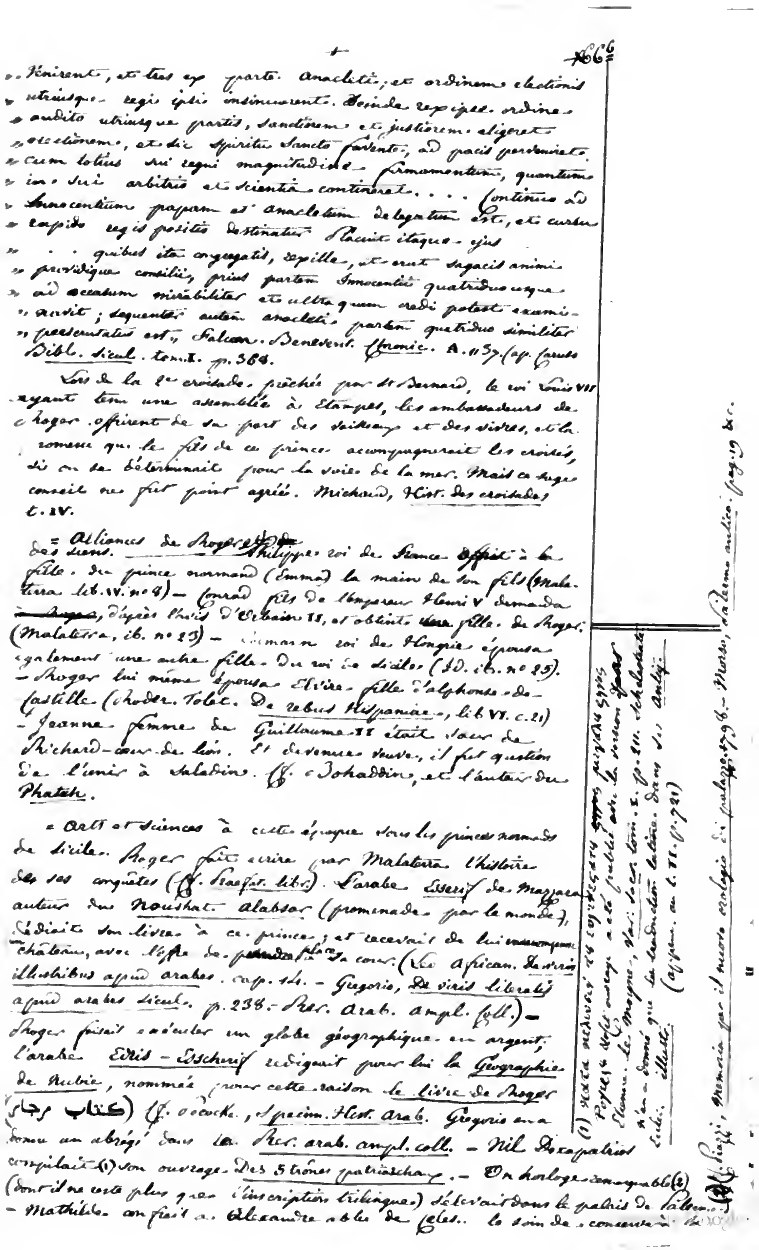 +
66
" Venirent, et tres ex parte Anacleti; et ordinem electionis
" utriusque regi ipsi insinuarent. Deinde rex ipse ordine
" audito utriusque partis, sanctiorem et justiorem eligeret
" electionem, et sic Spiritu Sancto favente, ad pacis perveniret
" cum totius sui regni magnitudine firmamentum, quantum
" in sui arbitrio et scientia contineret.... Continuo ad
" Innocentium papam et Anacletum delegatum est, et cursu
" rapido regis positio destinatur. Placuit itaque ejus
" . . quibus ita congregatis, rex ille, ut erat sagacis animi
" providique consilii, prius partem Innocentii quatriduo usque
" ad occasum mirabiliter et ultra quam credi potest exami-
" navit; sequenter autem Anacleti partem quatriduo similiter
" perscrutatus est, Falcon. Benevent. Chronic. A. 1137. (ap. Caruso
Bibl. Sicul. tom. I. p. 368.
Lors de la 2e croisade prêchée par St Bernard, le roi Louis VII
ayant tenu une assemblée à Etampes, les ambassadeurs de
Roger offrirent de sa part des vaisseaux et des vivres, et la
promesse que le fils de ce prince accompagnerait les croisés,
si on se déterminait pour la voie de la mer. Mais ce sage
conseil ne fut point agréé. Michaud, Hist. des croisades
t. IV.
= Alliances de Roger et de
des siens. Philippe roi de France offrit à la
fille du prince normand (Emma) la main de son fils (Mala-
terra lib. IV. no 8) — Conrad fils de l'Empereur Henri V demanda
, d'après l'avis d'Urbain II, et obtint une fille de Roger.
(Malaterra, ib. no 23) — roi de Hongrie épousa
également une autre fille du roi de Sicile (Id. ib. no 25).
— Roger lui même épousa Elvire fille d'alphonse de
Castille (Roder. Tolet. De rebus Hispaniae, lib VI. c. 21)
— Jeanne femme de Guillaume II était sœur de
Richard-cœur-de-lion. Et devenue veuve, il fut question
de l'unir à Saladin. (cf. Bohaddin, et l'auteur du
Phateh.
= Arts et sciences à cette époque sous les princes normands
de Sicile. Roger fait écrire par Malaterra l'histoire
de ses conquêtes (cf. Praefat. libr.). L'arabe Esserif de Mazzara
auteur du Noushat Alabsar (promenade par le monde),
dédiait son livre à ce prince, et recevait de lui
château, avec l'offre de place à sa cour. (Leo African. De viris
illustribus apud arabes. cap. 14. — Gregorio, De viris literatis
apud arabes siculos. p. 238. — Rer. Arab. Ampl. Coll.) —
Roger faisait exécuter un globe géographique en argent;
l'arabe Edris-Esscherif redigeait pour lui la Géographie
de Nubie, nommée pour cette raison le livre de Roger
(كتاب رجار) (f. Pococke, Specim. Hist. Arab. Gregorio en a
donné un abrégé dans la Rer. arab. ampl. coll. — Nil Doxapatrios
compilait (1) son ouvrage Des 5 trônes patriarchaux. — Un horloge remarquable (2)
(dont il ne reste plus que l'inscription trilingue) s'élevait dans le palais de Palerme
— Mathilde confiait à Alexandre abbé de Celes.. le soin de conserver
(1)
Etienne Le Moyne, Var. Sacr. tom. I. p. 211. Schelestrate
n'en a donné que la traduction latine dans ses Antiq.
Eccles. illustr. (append. au t. II. p. 721)
(2) , Memoria per il nuovo orologio di palazzo. 1798. — Morso, Palermo antico. pag. 19 &c.